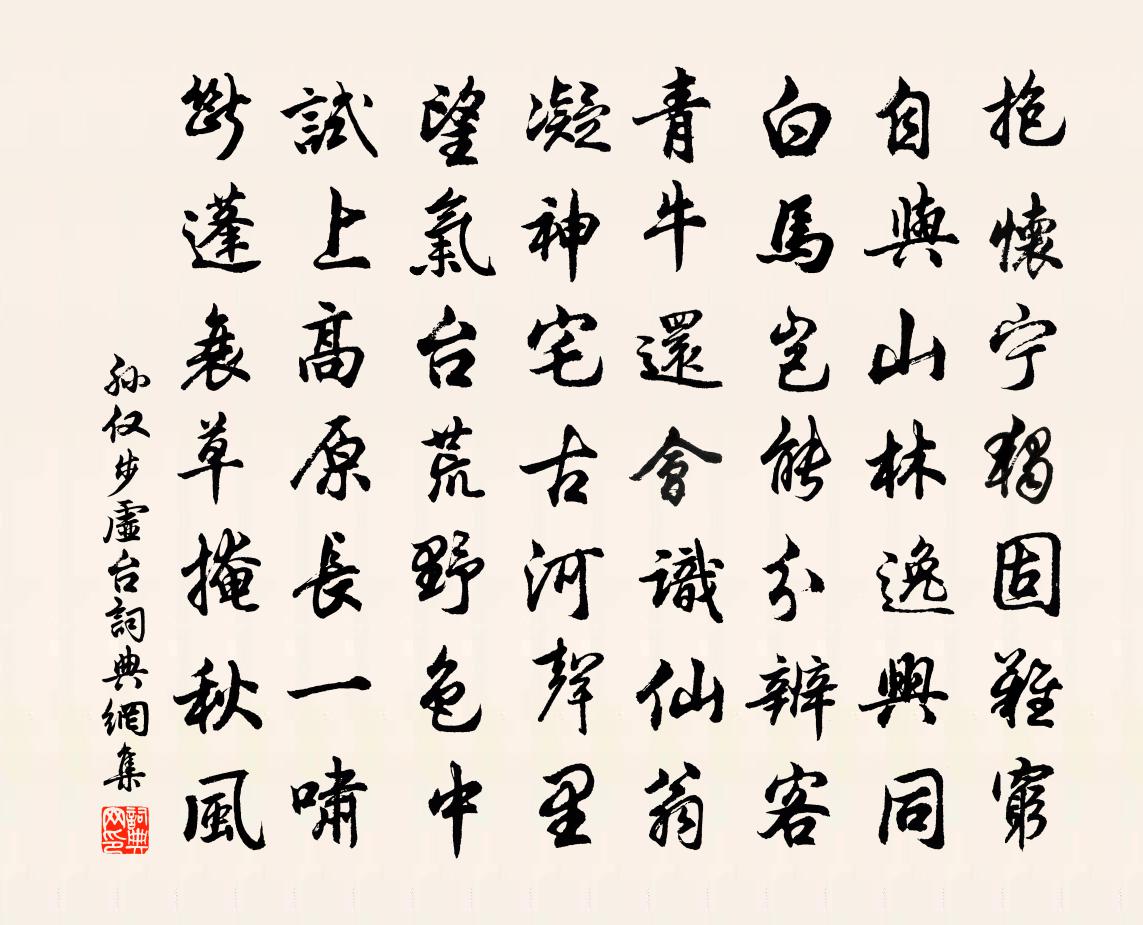 抱懷宁獨固難窮
自與山林逸興同
白馬豈能分辨客
青牛還會識仙翁
凝神宅古河聲里
望氣台荒野色中
試上高原長一嘯
斷蓬衰草掩秋風
孙仅步虛台詞典網集
詞典网印